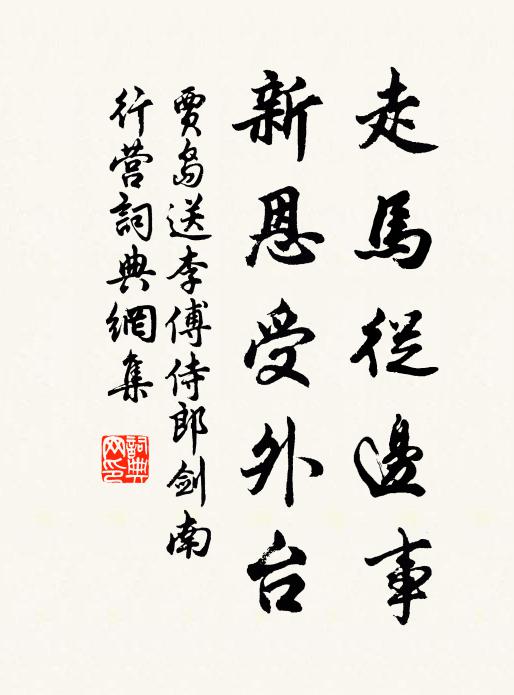 走馬従邊事
新恩受外台
賈島送李傅侍郎剑南
行营詞典網集
詞典
网印